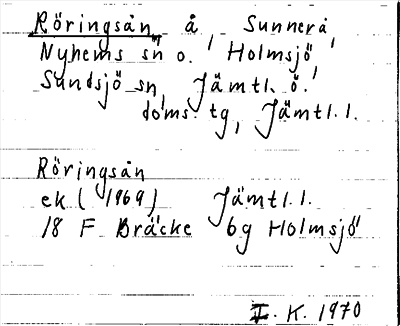 Röringsån, å, Sunnerå,
Nyhems sn o. Holmsjö,
Sundsjö sn, Jämtl. ö.
doms. tg, Jämtl. l.
Röringsån
ek (1969) Jämtl. l.
18 F Bräcke 6g Holmsjö
I. K. 1970